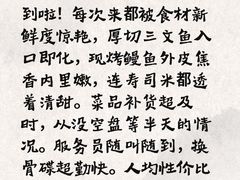 到啦！每次来都被食材新
鲜度惊艳，厚切三文鱼入
口即化，现烤鳗鱼外皮焦
香内里嫩，连寿司米都透
着清甜。菜品补货超及
时，从没空盘等半天的情
况。服务员随叫随到，换
骨碟超勤快。人均性价比